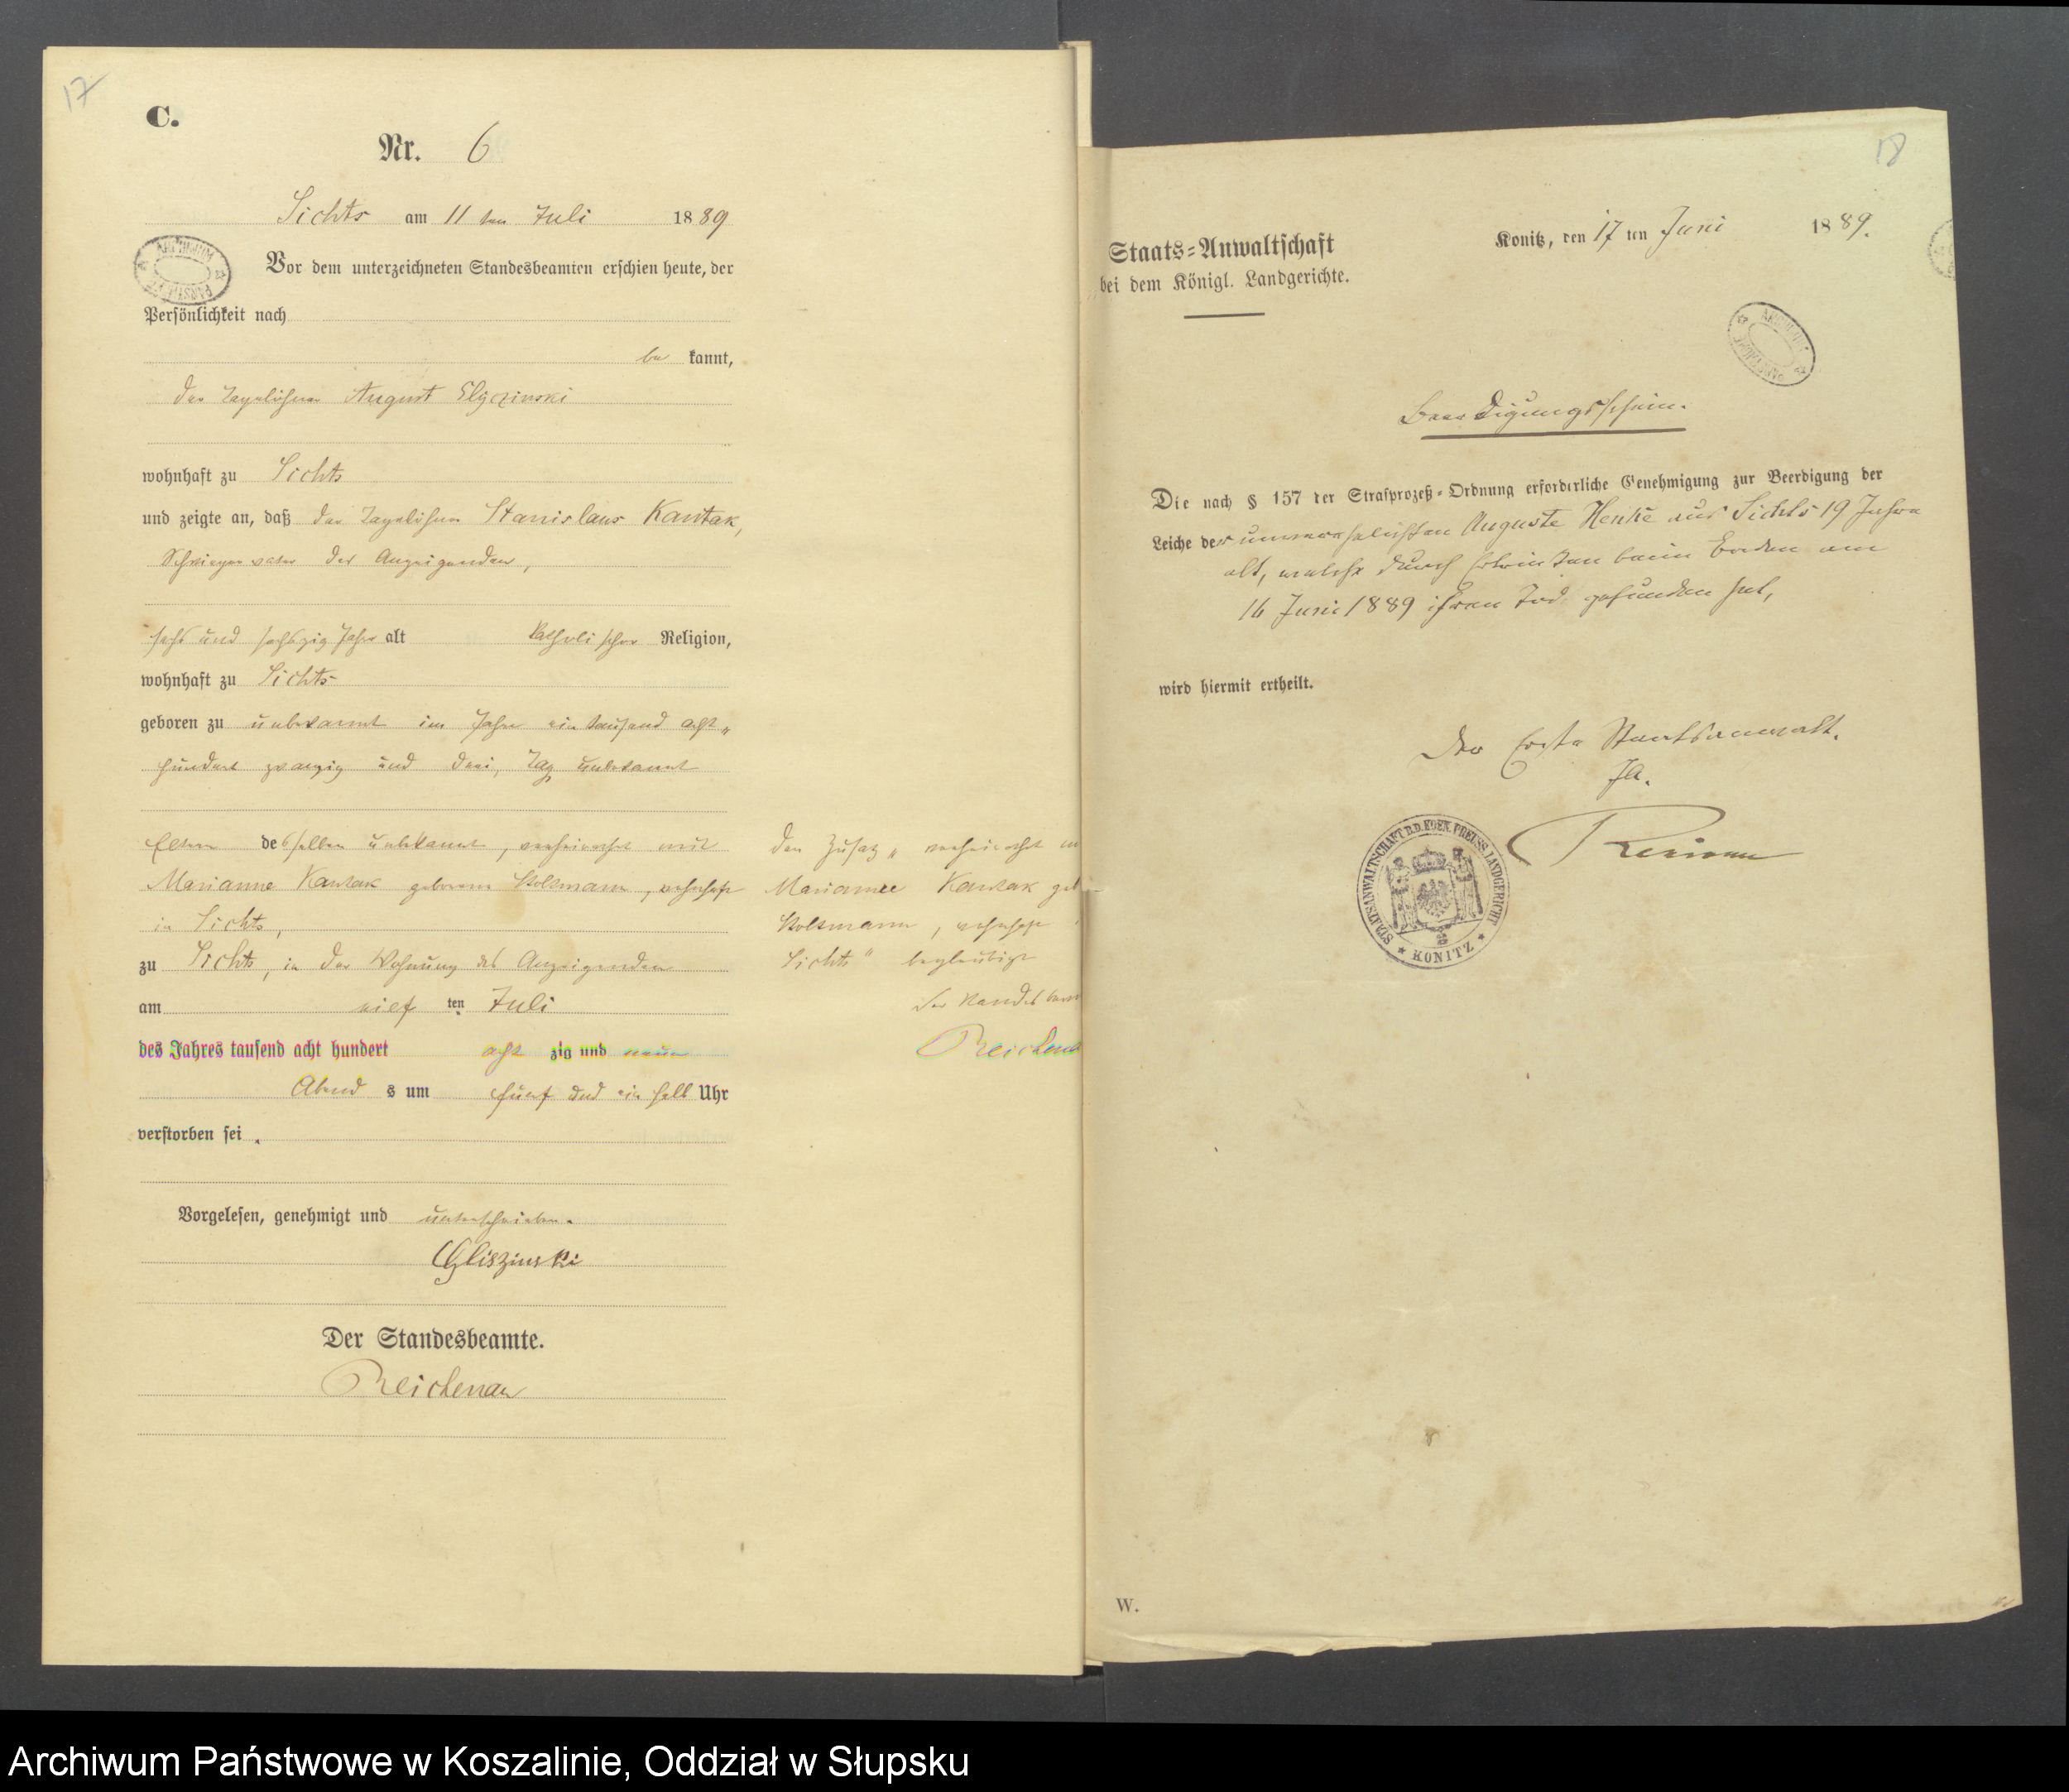 17
C.
Nr. 6
Sichts am 11 ten Juli 1889
Vor dem unterzeichneten Standesbeamten erschien heute, der
Persönlichkeit nach
be kannt,
der Tagelöhner August Glyczinski
wohnhaft zu Sichts
und zeigte an, daß der Tagelöhner Stanislaus Kantak,
Schwiegervater des Anzeigenden,
sechs und sechszig Jahre alt katholischer Religion,
wohnhaft zu Sichts
geboren zu unbekannt im Jahre ein tausend acht„
hundert zwanzig und drei, Tag unbekannt
Eltern desselben unbekannt, verheirathet mit
Marianne Kantak geborene Stoltmann, wohnhaft
in Sichts,
zu Sichts, in der Wohnung des Anzeigenden
am elf ten Juli
des Jahres tausend acht hundert acht zig und neun
Abend s um fünf und ein halb Uhr
verstorben sei.
Vorgelesen, genehmigt und unterschrieben.
Gliszinski
Der Standesbeamte.
Reichenau
Den Zusatz „ verheirathet
Marianne Kantak geb
Stoltmann, wohnhaft
Sichts" beglaubigt
Der Standesbeam
Reichena
18
Staats=Anwaltschaft
bei dem Königl. Landgerichte.
Konitz, den 17 ten Juni 1889.
Beerdigungsschein.
Die nach § 157 der Strafprozeß=Ordnung erforderliche Genehmigung zur Beerdigung der
Leiche der unverehelichten Auguste Henke aus Sichts 19 Jahre
alt, welche durch Ertrinken beim Baden am
16 Juni 1889 ihren Tod gefunden hat,
wird hiermit ertheilt.
Der Erste Staatsanwalt.
STAATSANWALTSCHAFT B.D. KOEN. PREUSS. LANDGERICHT
* KONITZ *
W.
Archiwum Państwowe w Koszalinie, Oddział w Słupsku